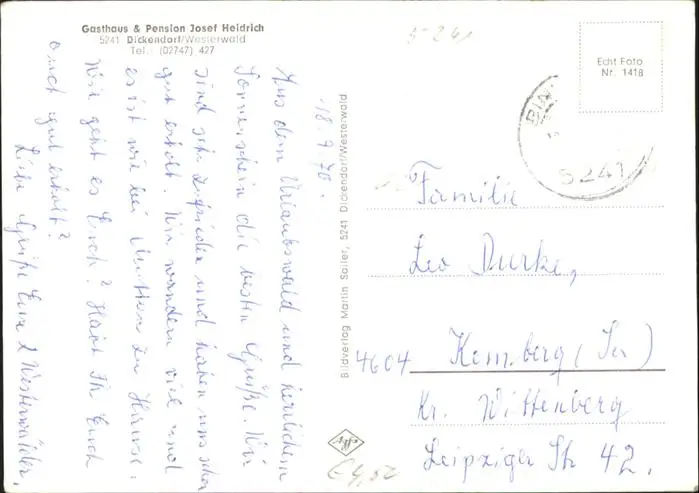 Gasthaus & Pension Josef Heidrich
5241 Dickendorf/Westerwald
Tel. (02747) 427
18.9.76.
Aus dem Urlaubswald und herrlichem
Sonnenschein die besten Grüße. Wir
sind sehr zufrieden und haben uns schon
gut erholt. Wir wandern viel und
es ist wie bei Muttern zu Hause.
Wie geht es Euch? Habt Ihr Euch
auch gut erholt?
Liebe Grüße Eure 2 Westerwälder.
Bildverlag Martin Sailer, 5241 Dickendorf/Westerwald
5241
Echt Foto
Nr. 1418
5241
Familie
Leo Durke,
4604 Kemberg (
Kr. Wittenberg
Leipziger Str 42.
Agfa